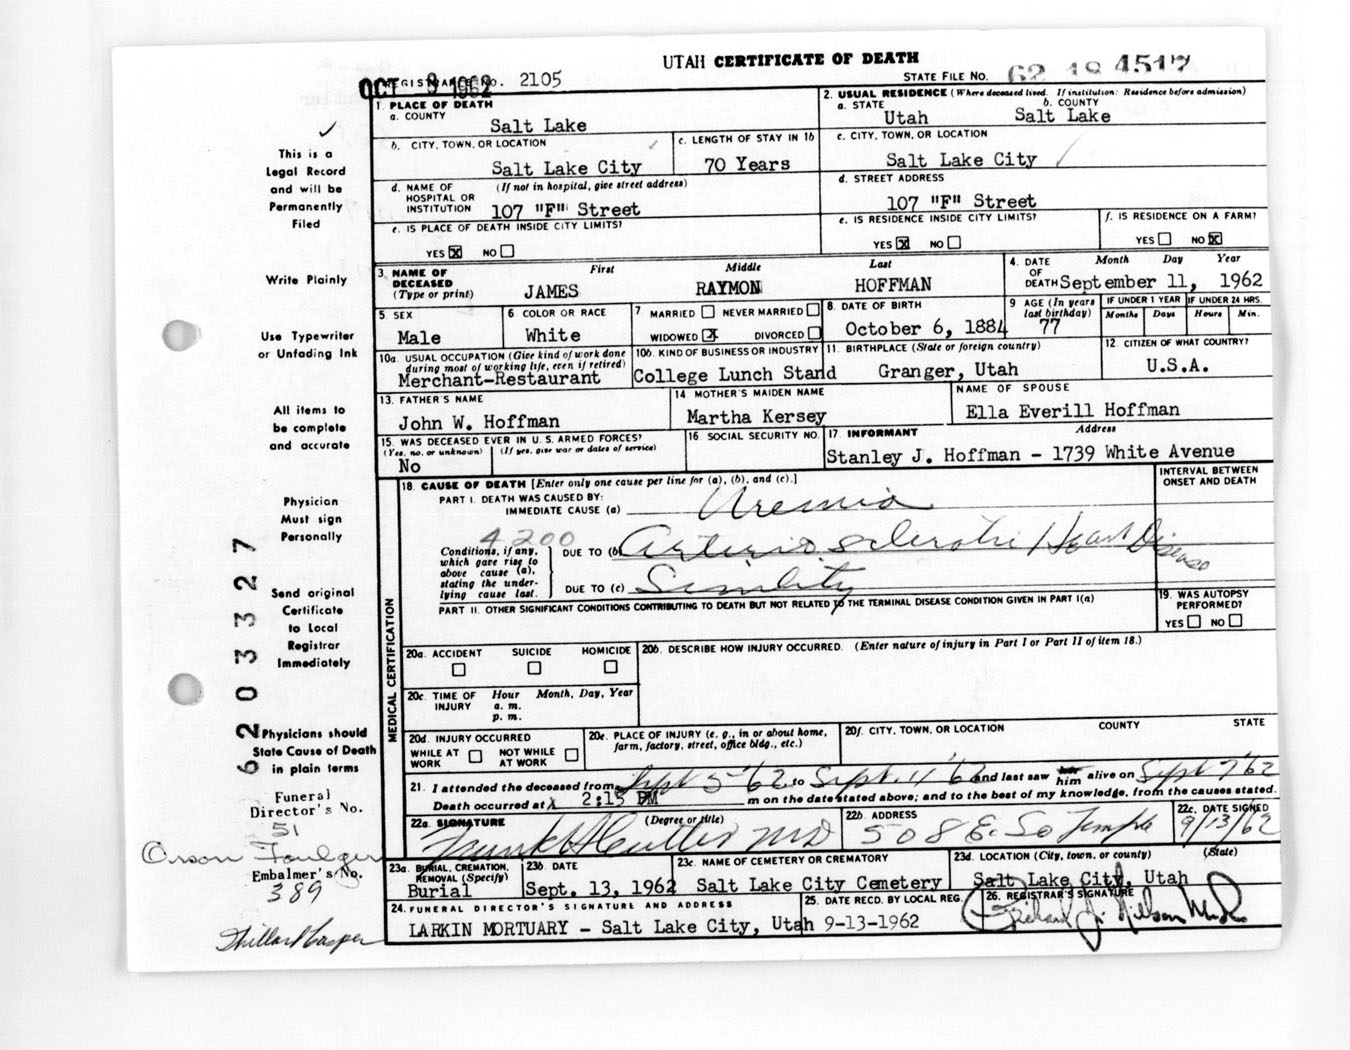 UTAH CERTIFICATE OF DEATH
OCT 9 1962
REGISTRAR'S NO. 2105
STATE FILE NO. 62 18 4517
✓
This is a
Legal Record
and will be
Permanently
Filed
Write Plainly
Use Typewriter
or Unfading Ink
All items to
be complete
and accurate
Physician
Must sign
Personally
Send original
Certificate
to Local
Registrar
Immediately
Physicians should
State Cause of Death
in plain terms
Funeral
Director's No.
51
Orson Foulger
Embalmer's No.
389
620 3327
1. PLACE OF DEATH
a. COUNTY
Salt Lake
b. CITY, TOWN, OR LOCATION ✓
Salt Lake City
c. LENGTH OF STAY IN 1b
70 Years
d. NAME OF HOSPITAL OR INSTITUTION (If not in hospital, give street address)
107 "F" Street
e. IS PLACE OF DEATH INSIDE CITY LIMITS?
YES ☒ NO ☐
2. USUAL RESIDENCE (Where deceased lived. If institution: Residence before admission)
a. STATE b. COUNTY
Utah Salt Lake
c. CITY, TOWN, OR LOCATION
Salt Lake City ✓
d. STREET ADDRESS
107 "F" Street
e. IS RESIDENCE INSIDE CITY LIMITS?
YES ☒ NO ☐
f. IS RESIDENCE ON A FARM?
YES ☐ NO ☒
3. NAME OF DECEASED (Type or print)
First Middle Last
JAMES RAYMON HOFFMAN
4. DATE OF DEATH Month Day Year
September 11, 1962
5. SEX
Male
6 COLOR OR RACE
White
7 MARRIED ☐ NEVER MARRIED ☐
WIDOWED ☒ DIVORCED ☐
8. DATE OF BIRTH
October 6, 1884
9 AGE (In years last birthday)
77
IF UNDER 1 YEAR
Months Days
IF UNDER 24 HRS.
Hours Min.
10a. USUAL OCCUPATION (Give kind of work done during most of working life, even if retired)
Merchant-Restaurant
10b. KIND OF BUSINESS OR INDUSTRY
College Lunch Stand
11. BIRTHPLACE (State or foreign country)
Granger, Utah
12 CITIZEN OF WHAT COUNTRY?
U.S.A.
13. FATHER'S NAME
John W. Hoffman
14. MOTHER'S MAIDEN NAME
Martha Kersey
NAME OF SPOUSE
Ella Everill Hoffman
15. WAS DECEASED EVER IN U.S. ARMED FORCES?
(Yes, no, or unknown) (If yes, give war or dates of service)
No
16. SOCIAL SECURITY NO.
17. INFORMANT Address
Stanley J. Hoffman - 1739 White Avenue
MEDICAL CERTIFICATION
18. CAUSE OF DEATH [Enter only one cause per line for (a), (b), and (c).]
INTERVAL BETWEEN ONSET AND DEATH
PART I. DEATH WAS CAUSED BY:
IMMEDIATE CAUSE (a) Uremia
4200
Conditions, if any, which gave rise to above cause (a), stating the underlying cause last.
DUE TO (b) Arteriosclerotic Heart Disease
DUE TO (c) Senility
PART II. OTHER SIGNIFICANT CONDITIONS CONTRIBUTING TO DEATH BUT NOT RELATED TO THE TERMINAL DISEASE CONDITION GIVEN IN PART I(a)
19. WAS AUTOPSY PERFORMED?
YES ☐ NO ☐
20a. ACCIDENT SUICIDE HOMICIDE
☐ ☐ ☐
20b. DESCRIBE HOW INJURY OCCURRED. (Enter nature of injury in Part I or Part II of item 18.)
20c. TIME OF INJURY Hour Month, Day, Year
a. m.
p. m.
20d. INJURY OCCURRED
WHILE AT WORK ☐ NOT WHILE AT WORK ☐
20e. PLACE OF INJURY (e. g., in or about home, farm, factory, street, office bldg., etc.)
20f. CITY, TOWN, OR LOCATION COUNTY STATE
21. I attended the deceased from Sept 5 '62 to Sept. 11 '62 and last saw her him alive on Sept 7 '62
Death occurred at 2:15 PM m on the date stated above; and to the best of my knowledge, from the causes stated.
22a. SIGNATURE (Degree or title)
MD
22b. ADDRESS
508 E. So Temple
22c. DATE SIGNED
9/13/62
23a. BURIAL, CREMATION, REMOVAL (Specify)
Burial
23b. DATE
Sept. 13, 1962
23c. NAME OF CEMETERY OR CREMATORY
Salt Lake City Cemetery
23d. LOCATION (City, town, or county) (State)
Salt Lake City, Utah
24. FUNERAL DIRECTOR'S SIGNATURE AND ADDRESS
LARKIN MORTUARY - Salt Lake City, Utah
25. DATE RECD. BY LOCAL REG.
9-13-1962
26. REGISTRAR'S SIGNATURE